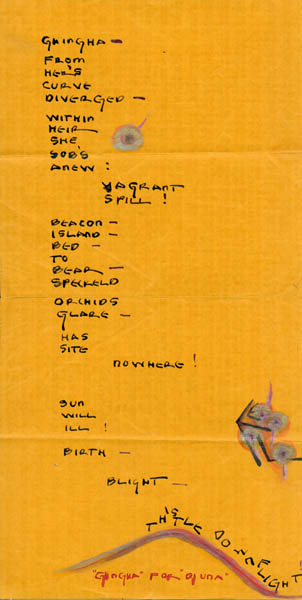 GHINGHA —
FROM
HER'S
CURVE
DIVERGED —
WITHIN
HEIR
SHE
SOB'S
ANEW :
VAGRANT
SPILL !
BEACON —
ISLAND —
BED —
TO
BEAR —
SPECKELD
ORCHIDS
GLARE —
HAS
SITE
NOWHERE !
SUN
WILL
ILL !
BIRTH —
BLIGHT —
THISTLE DOWNFLIGHT !
"GHINGHA" FOR "DJUNA"